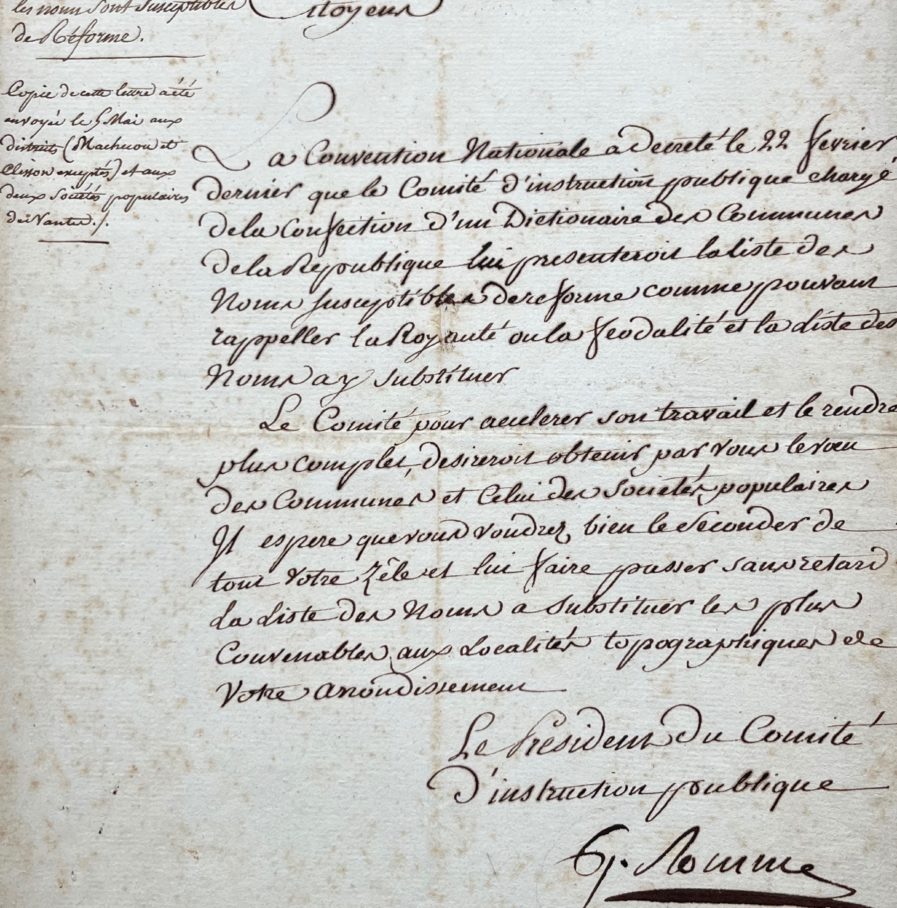 les noms sont susceptibles
de Réforme.
Copie de cette lettre a été
envoyée le 5 Mai aux
districts (Machecou et
Clisson exceptés) et aux
deux Sociétés populaires
de Nantes ./.
Citoyens
La Convention Nationale a decreté le 22 fevrier
dernier que le Comité d'instruction publique chargé
de la Confection d'un Dictionaire des Communes
de la Republique lui presenteroit la liste des
Noms susceptibles de reforme comme pouvant
rappeller la Royauté ou la feodalité et la Liste des
Noms a y substituer
Le Comité pour accelerer son travail et le rendre
plus complet, desireroit obtenir par vous le vœu
des Communes et Celui des Societés populaires
Il espere que vous voudrez bien le Seconder de
tout votre Zêle et lui faire passer sans retard
La Liste des Noms a Substituer les plus
Convenables aux Localités topographiques de
Votre arrondissement
Le President du Comité
d'instruction publique
G. Romme